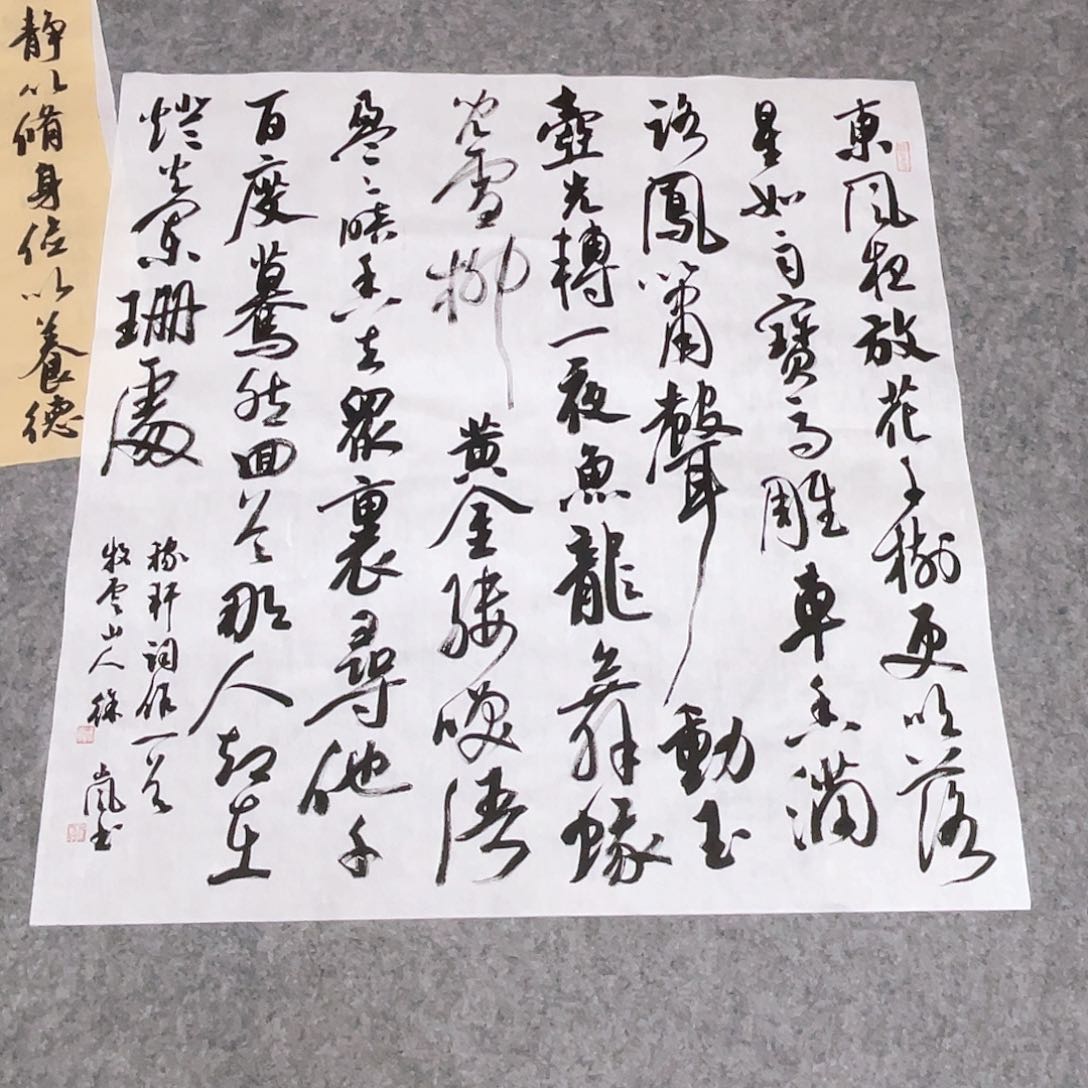 東風夜放花千樹更吹落
星如雨寶馬雕車香滿
路鳳簫聲動玉
壺光轉一夜魚龍舞蛾
兒雪柳黃金縷笑語
盈々暗香去眾裏尋他千
百度驀然回首那人却在
燈火闌珊處
稼軒詞作一首
牧雲山人徐嵐書
靜以脩身儉以養德